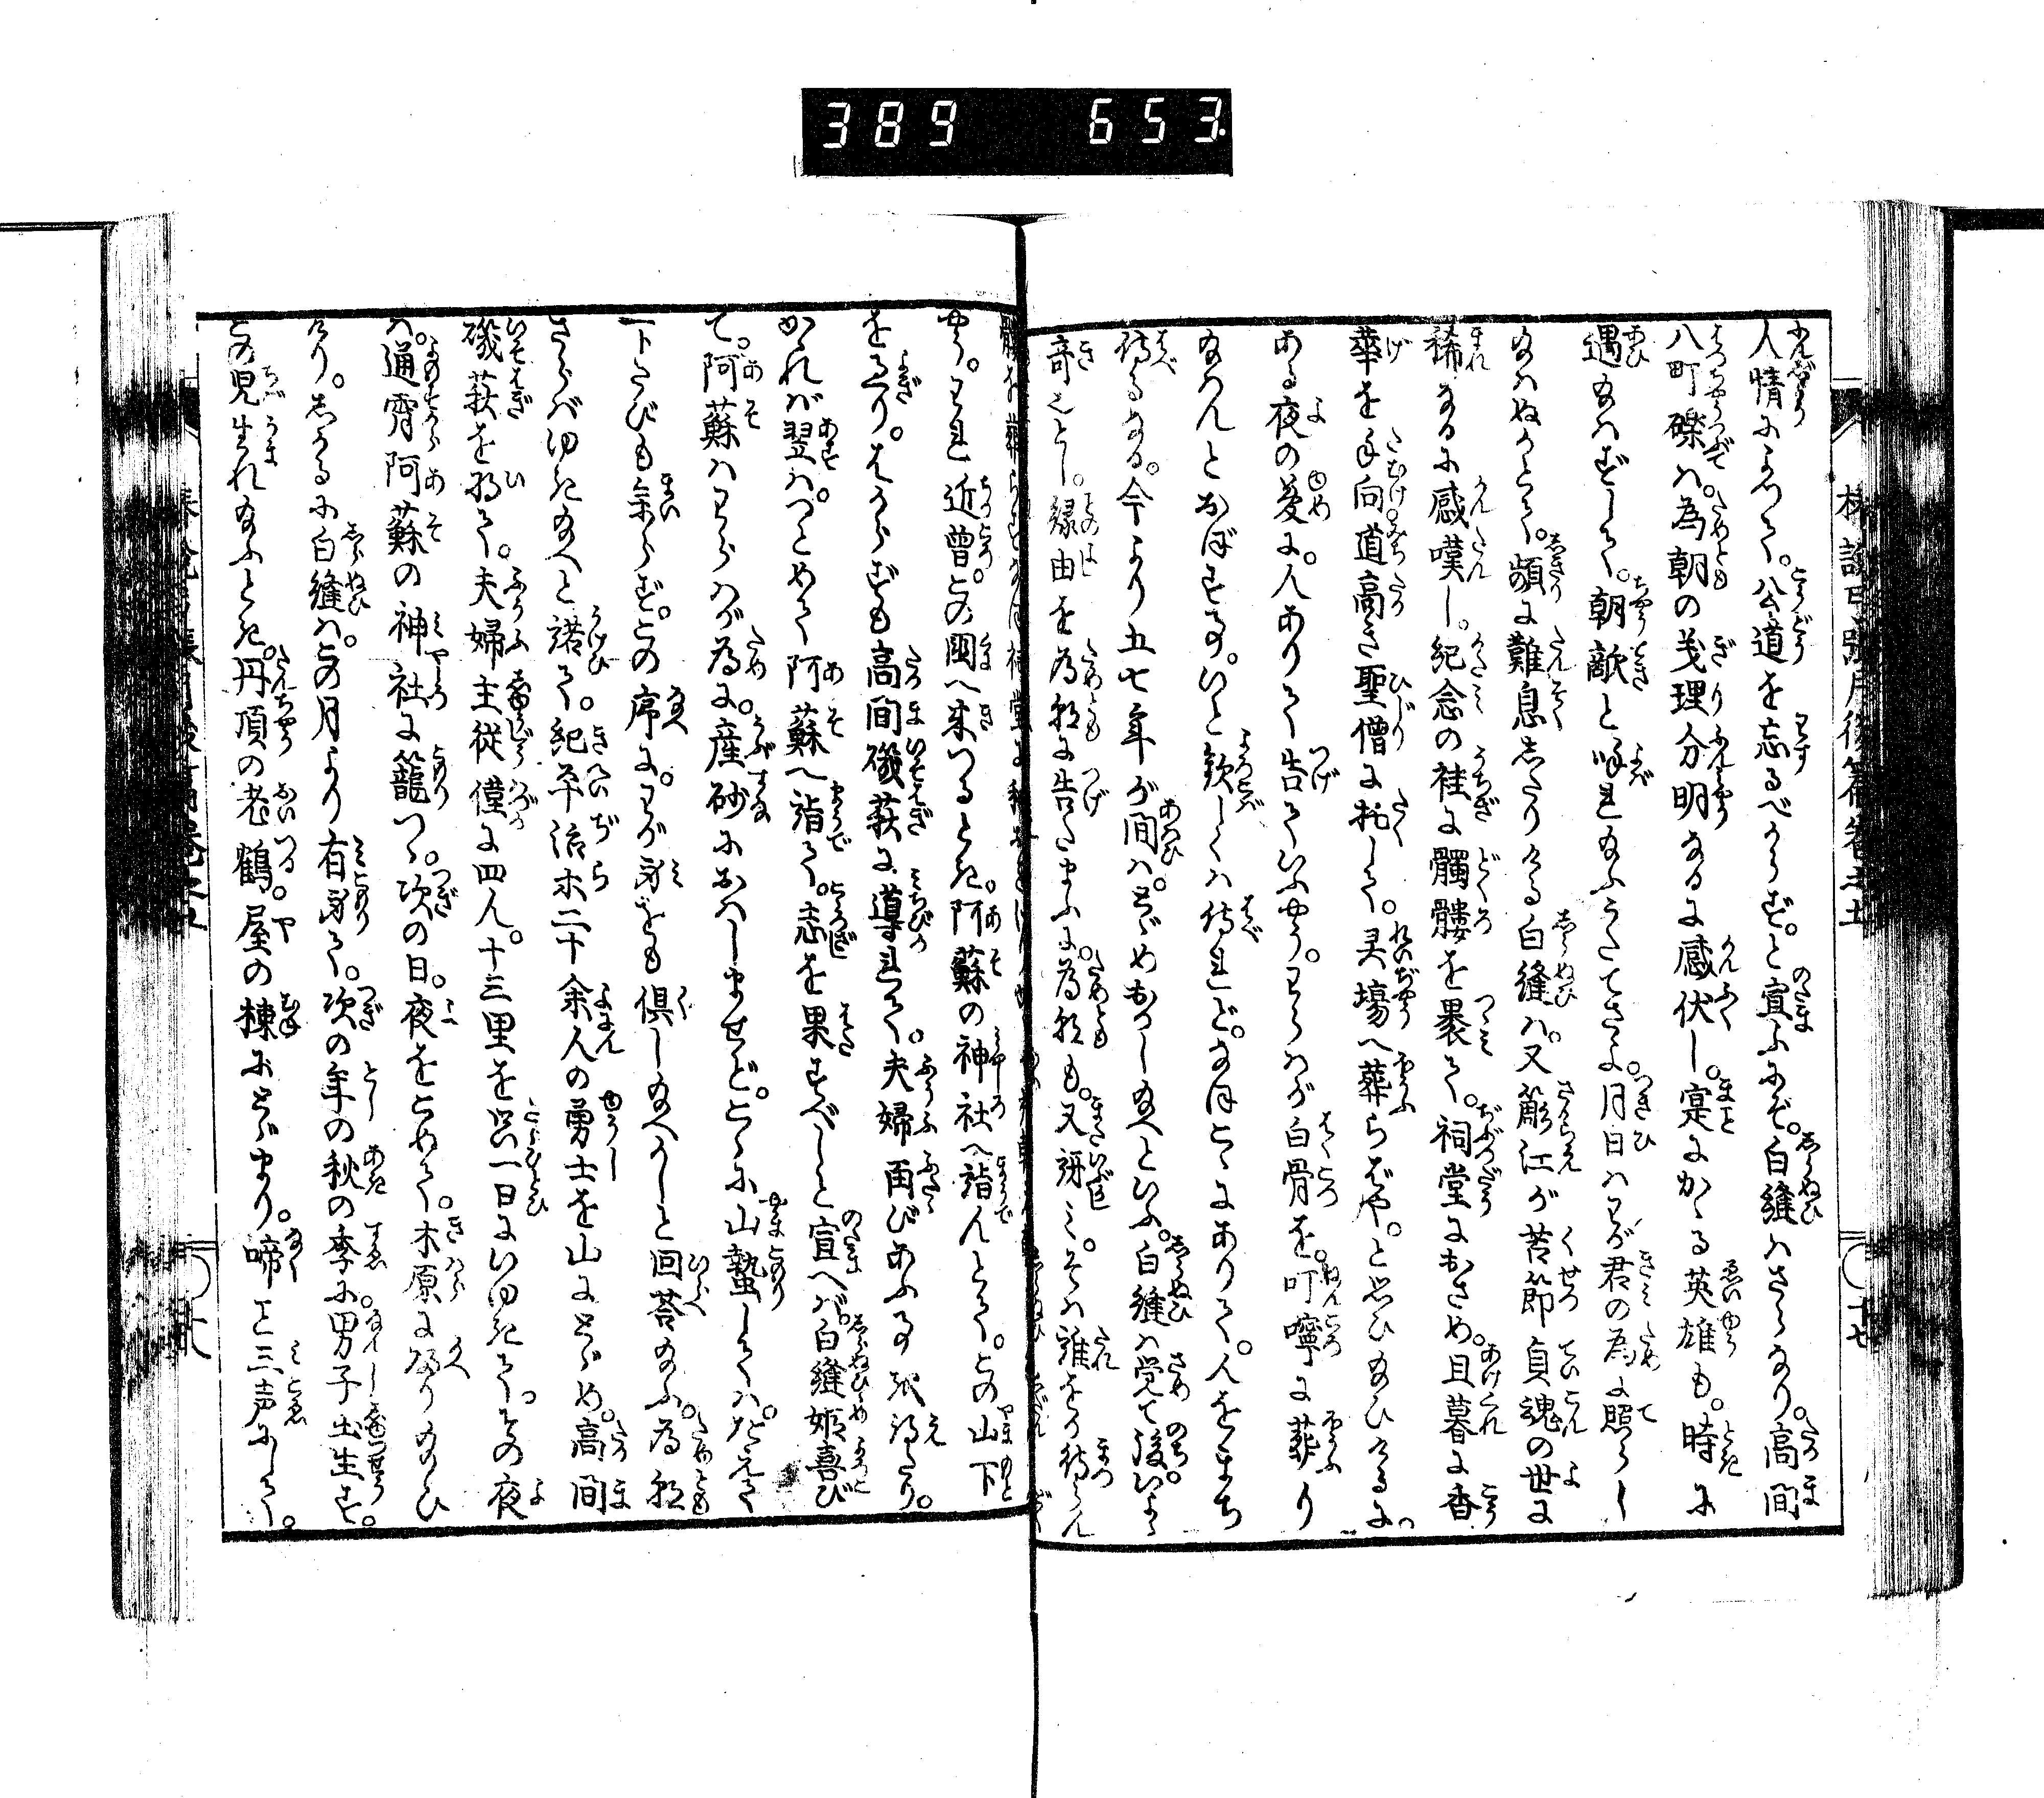 389 653
人情によつて。公道を忘るべからず。と宣ふにぞ。白縫はさら也。高間
八町礫は。為朝の義理分明なるに感伏し。寔にかゝる英雄も。時に
遇給はずして。朝敵と呼れ給ふうたてさよ。月日はわが君の為に照らし
給はぬかとて。頻に難息したりける白縫は。又簓江が苦節貞魂の世に
稀なるに感嘆し。紀念の袿に髑髏を褁て。祠堂におさめ。旦暮に香
華を手向道高き聖僧に托して。灵場へ葬らばや。と思ひ給ひけるに。
ある夜の夢に。人ありて告ていふやう。わらはが白骨を。叮嚀に葬り
給はんとおぼすの事。いと歓しくは侍れど。なほこゝにありて。人をまち
侍るなる。今より五七年が間は。とゞめおかし給へといふ。白縫は覚て後。いよゝ
奇しとし。縁由を為朝に告たまふに。為朝も。又訝み。そは誰をか待らん
やう。われ近曽。この国へ来つるとき。阿蘇の神社へ詣んとて。この山下
を過り。はからずも高間磯萩に導れて。夫婦再びあふ事を得たり。
かゝれば翌は。つとめて阿蘇へ詣て。志を果すべしと宣へば。白縫姫喜び
て。阿蘇はわらはが為に。産砂におはしませど。こゝに山蟄しては。たえて
一トたびも參らず。この序に。わが身をも倶し給へかしと回荅給ふ。為朝
さらばゆき給へと諾て。紀平治ホ二十余人の勇士を山にとゞめ。高間
磯萩を将て。夫婦主従僅に四人。十三里を只一日にいゆきて。その夜
は。通宵阿蘇の神社に籠つゝ。次の日。夜をこめて。木原に帰り給ひ
けり。しかるに白縫は。この月より有身て。次の年の秋の季に。男子出生す。
この児生れ給ふとき。丹頂の老鶴。屋の棟にとゞまり。啼こと三声にして。